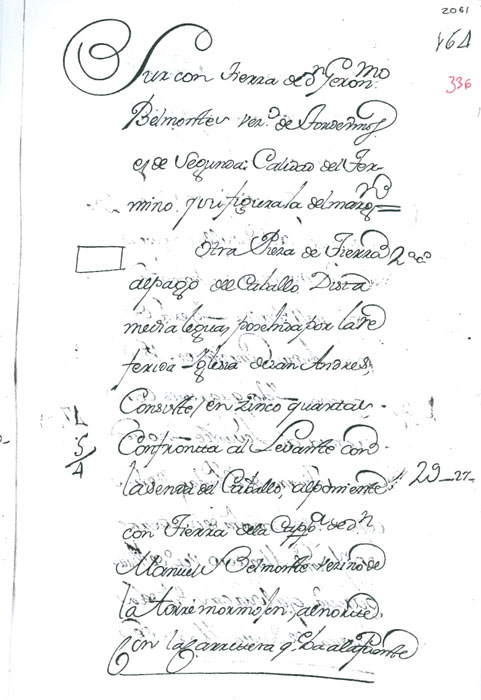 2061
464
336
Sur con tierra de dn Geronmo
Belmonte, vezo de Tordehumos
es de segunda Calidad del ter-
mino. y su figura la del margn
Otra Pieza de Tierra 2ª cd
al pago del Caballo Dista
media legua, posehida por la re
ferida Iglesia de san Andres,
Consiste en zinco quartas.
L 5/4
Confronta al Levante con
la senda del Caballo, al poniente 29_27_
con Tierra de la Cappa de dn
Manuel Belmonte vezino de
la torre mormojon, al norte
con la Carretera q. ba a la Puente